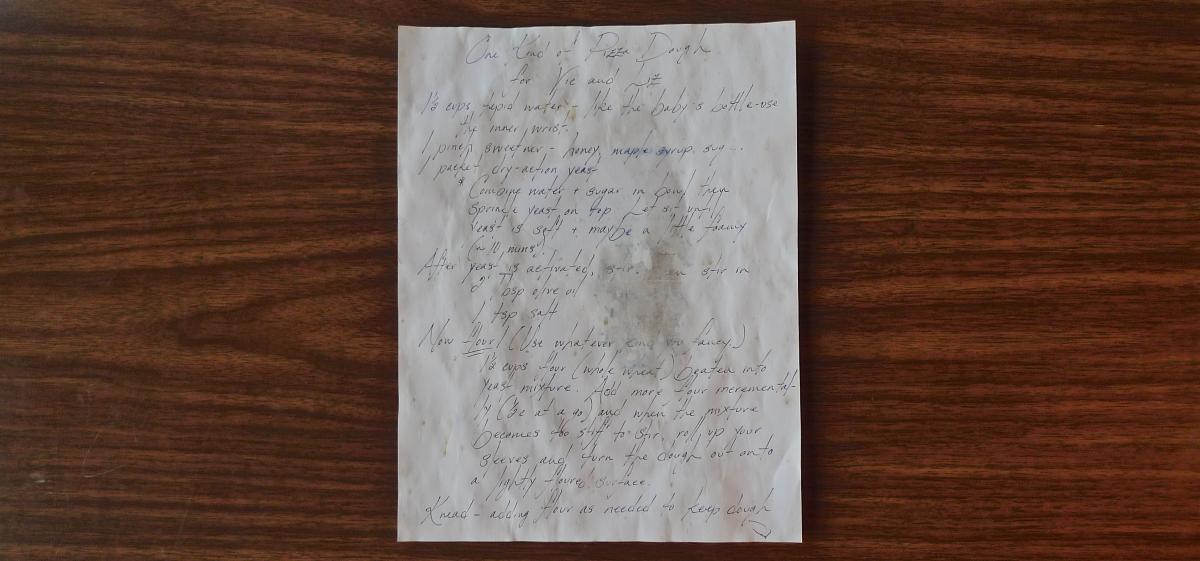 One Kind of Pizza Dough
for Vic and Liz
1½ cups tepid water - like the baby's bottle-use
the inner wrist.
1 pinch sweetner - honey, maple syrup, sug...
1 packet dry-action yeast
* Combine water + sugar in bowl then
sprinkle yeast on top. Let sit until
yeast is soft + maybe a little foamy
(~10 mins)
After yeast is activated, stir. stir in
2 Tbsp olive oil
1 tsp salt
Now flour! (Use whatever kind you fancy.)
1½ cups flour (whole wheat) beaten into
yeast mixture. Add more flour incremental-
ly (½c at a go) and when the mixture
becomes too stiff to stir, roll up your
sleeves and turn the dough out onto
a lightly floured surface.
Knead - adding flour as needed to keep dough